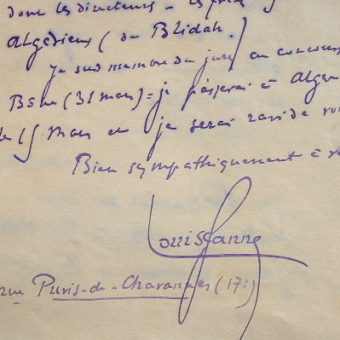 donc les directeurs
Algériens (ou Blidah.)
Je suis membre du jury au concours
(31 mars) = je passerai à Alger
15 mars et je serai ravi de
Bien sympathiquement à
Louis Ganne
rue Puvis-de-Chavannes (17e)